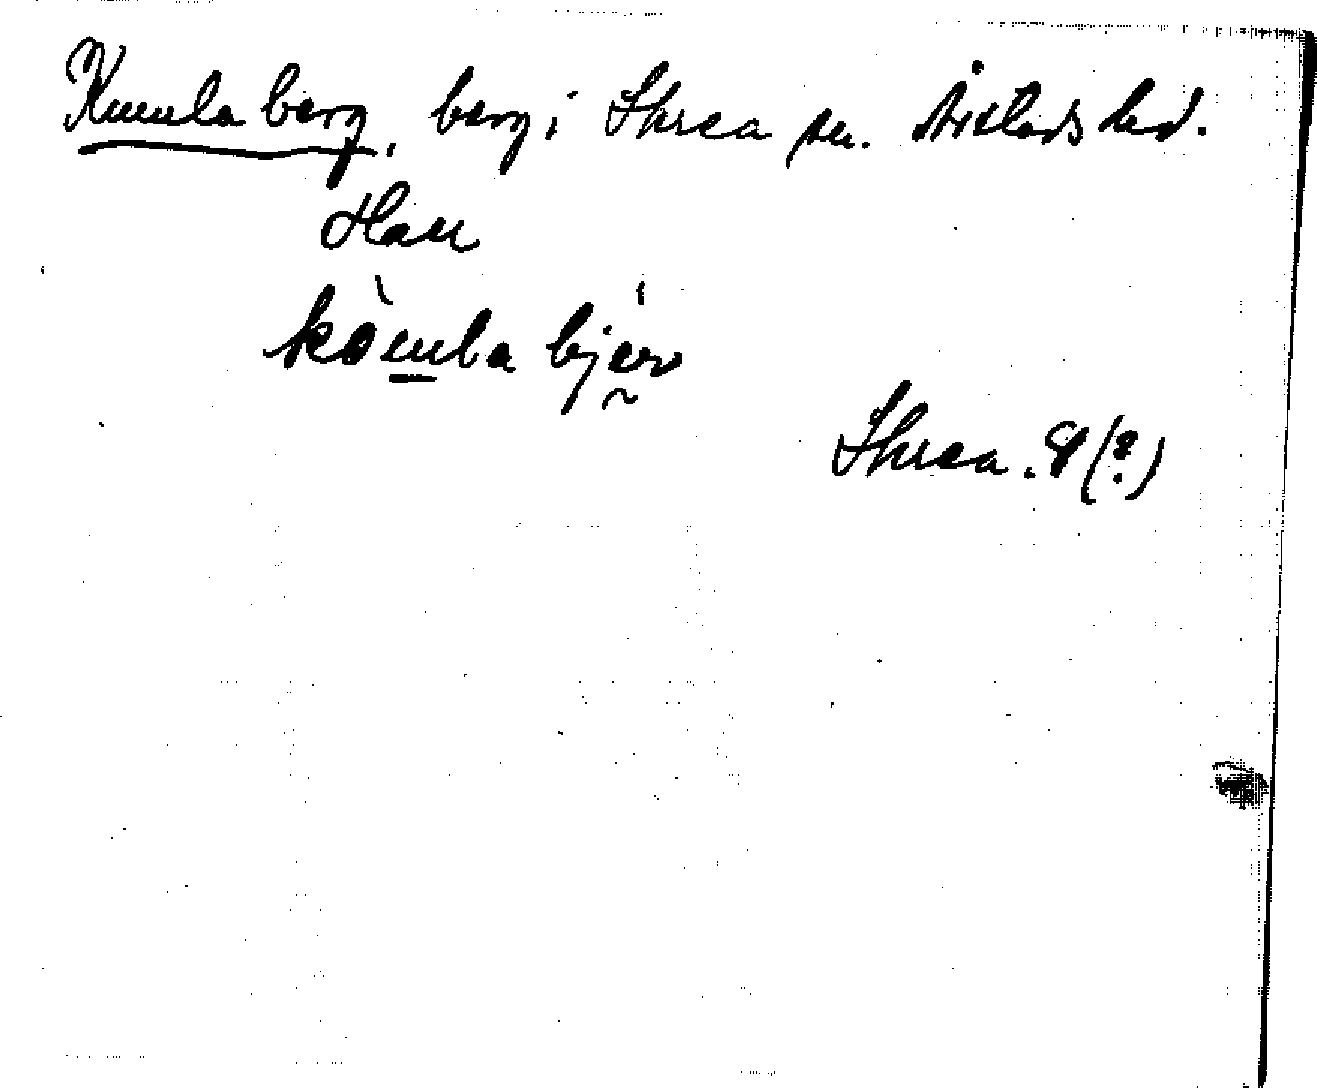 Kumla berg, berg i Skrea sn. Årstads hd.
Hall
kòmla bjær
Skrea. 8 (?)